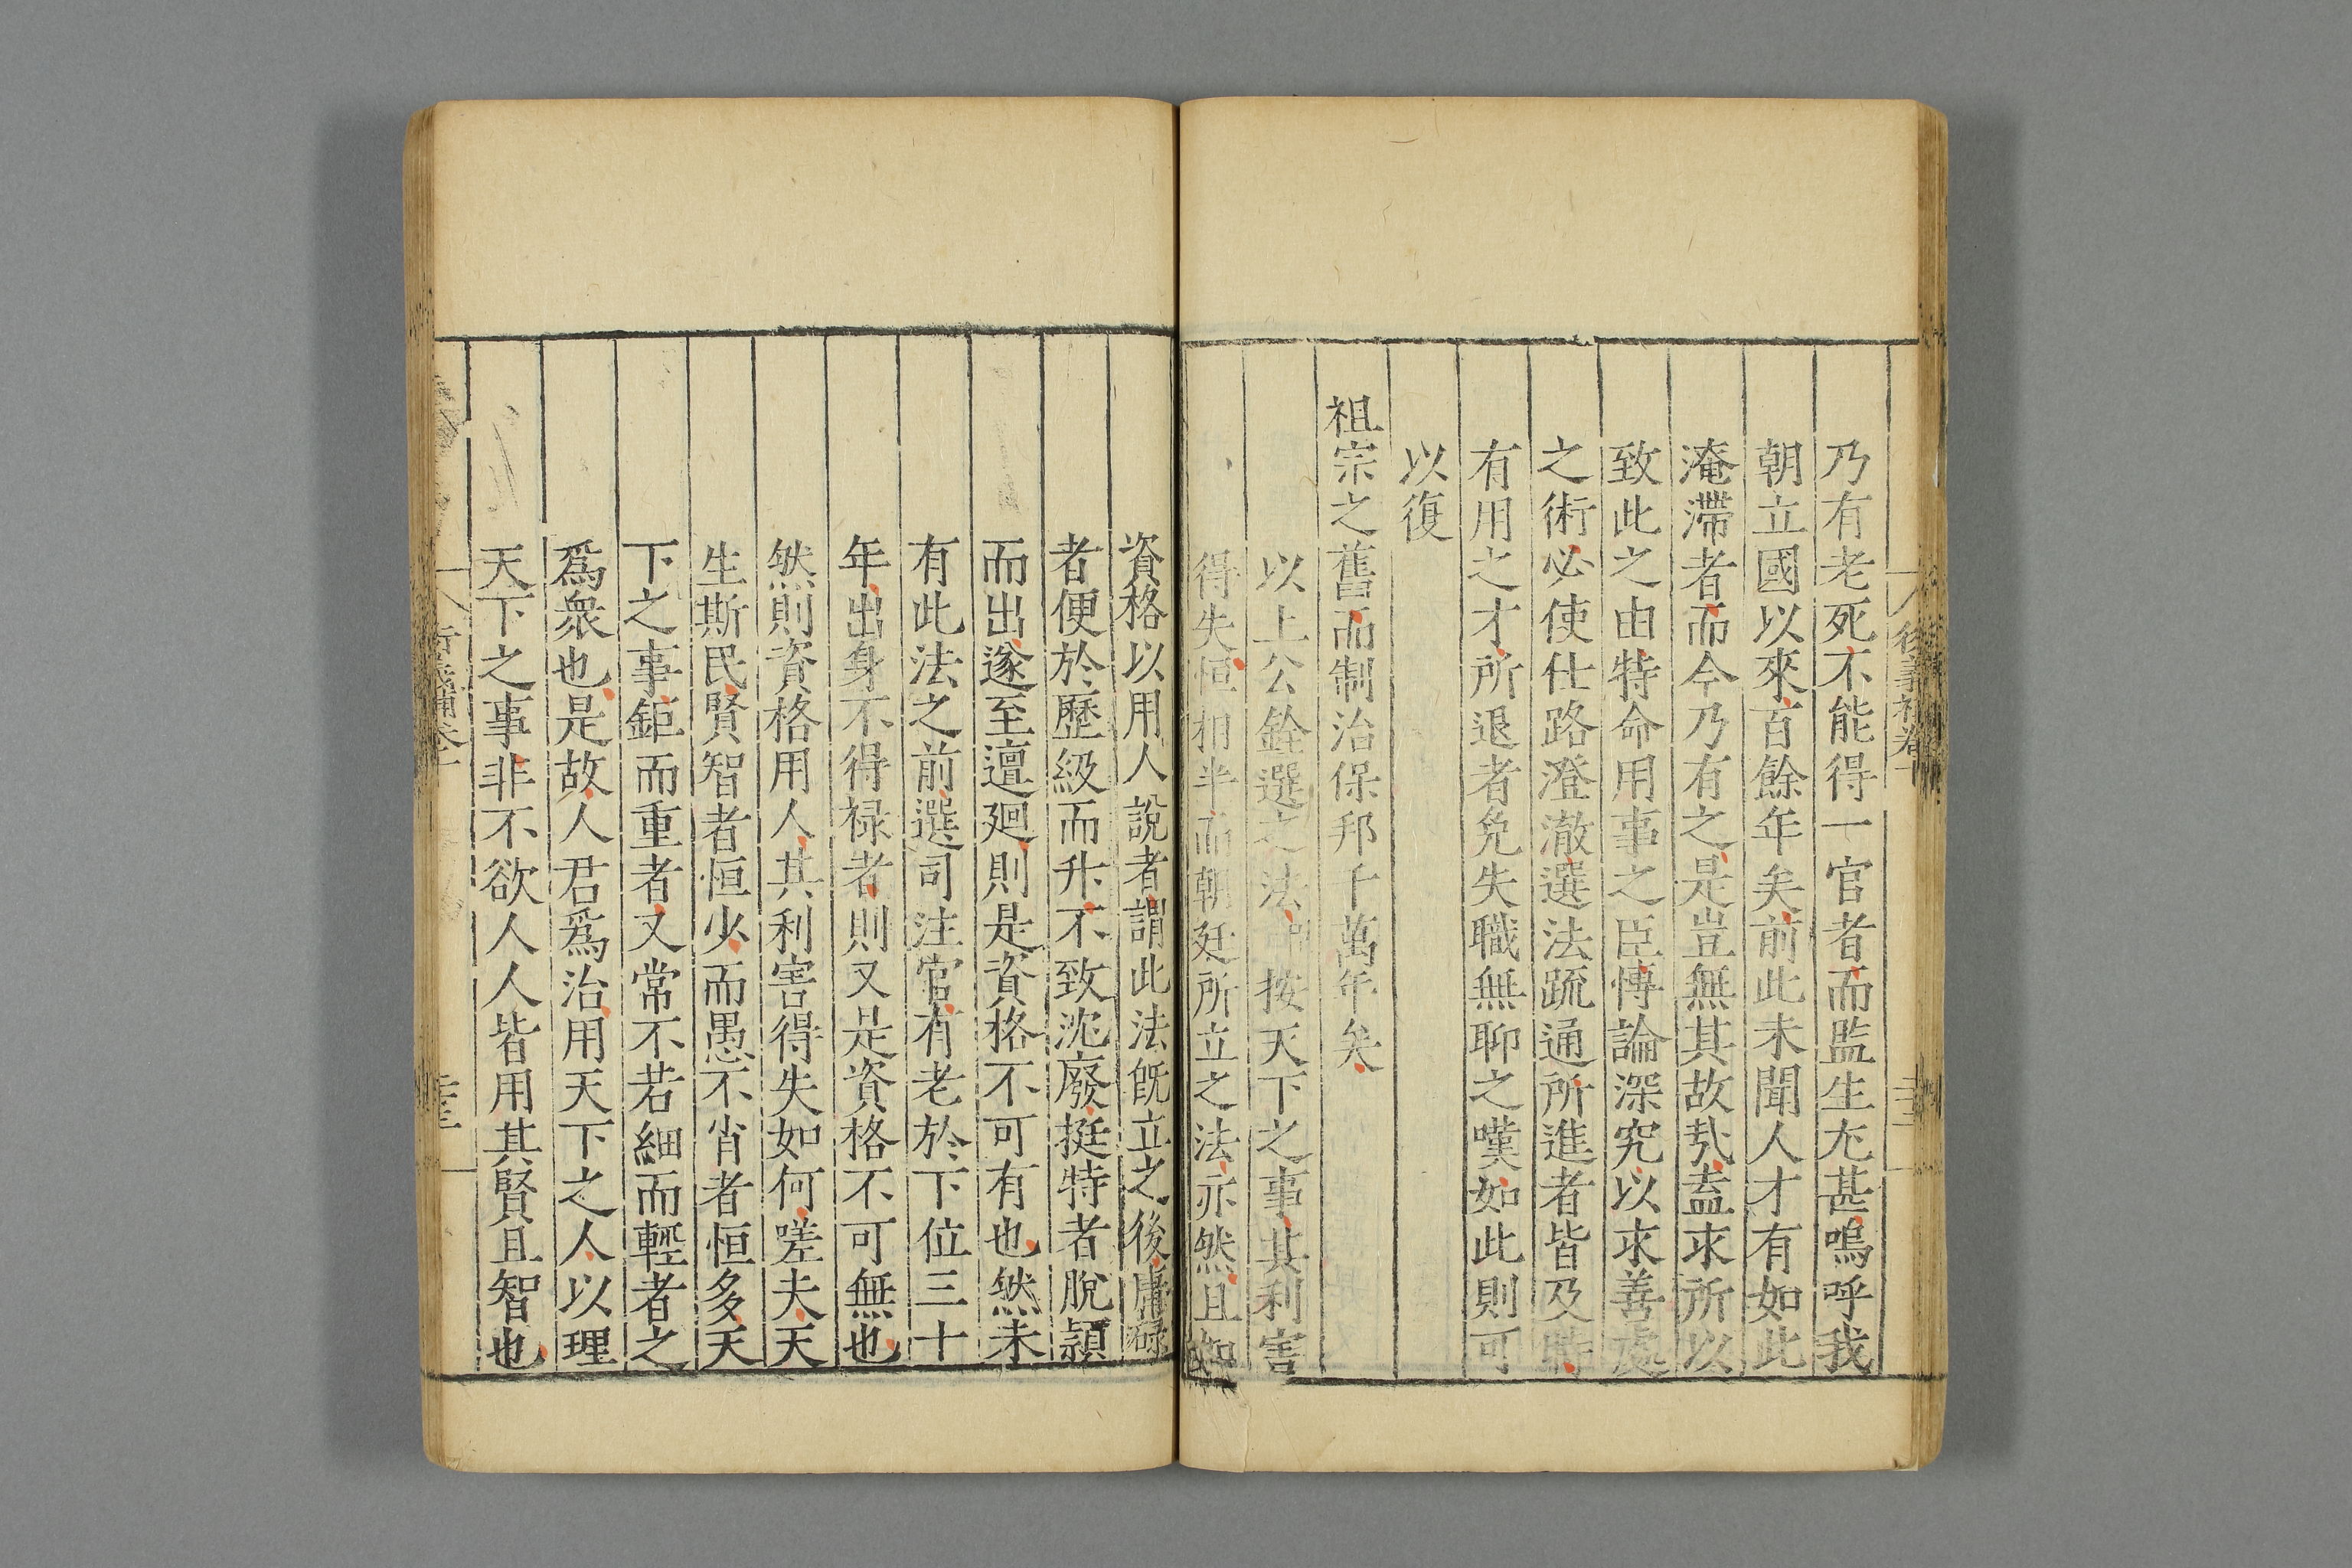 乃有老死不能得一官者而監生尤甚嗚呼我
朝立國以來百餘年矣前此未聞人才有如此
淹滯者而今乃有之是豈無其故㢤盍求所以
致此之由特命用事之臣愽論深究以求善處
之術必使仕路澄澈選法疏通所進者皆及時
有用之才所退者免失職無聊之嘆如此則可
以復
祖宗之舊而制治保邦千萬年矣
以上公銓選之法 按天下之事其利害
得失恒相半而朝廷所立之法亦然且如
資格以用人說者謂此法旣立之後庸碌
者便於歷級而升不致沈廢挺特者脫頴
而出遂至邅廻則是資格不可有也然未
有此法之前選司注官有老於下位三十
年出身不得禄者則又是資格不可無也
然則資格用人其利害得失如何嗟夫天
生斯民賢智者恒少而愚不肖者恒多天
下之事鉅而重者又常不若細而輕者之
爲衆也是故人君爲治用天下之人以理
天下之事非不欲人人皆用其賢且智也